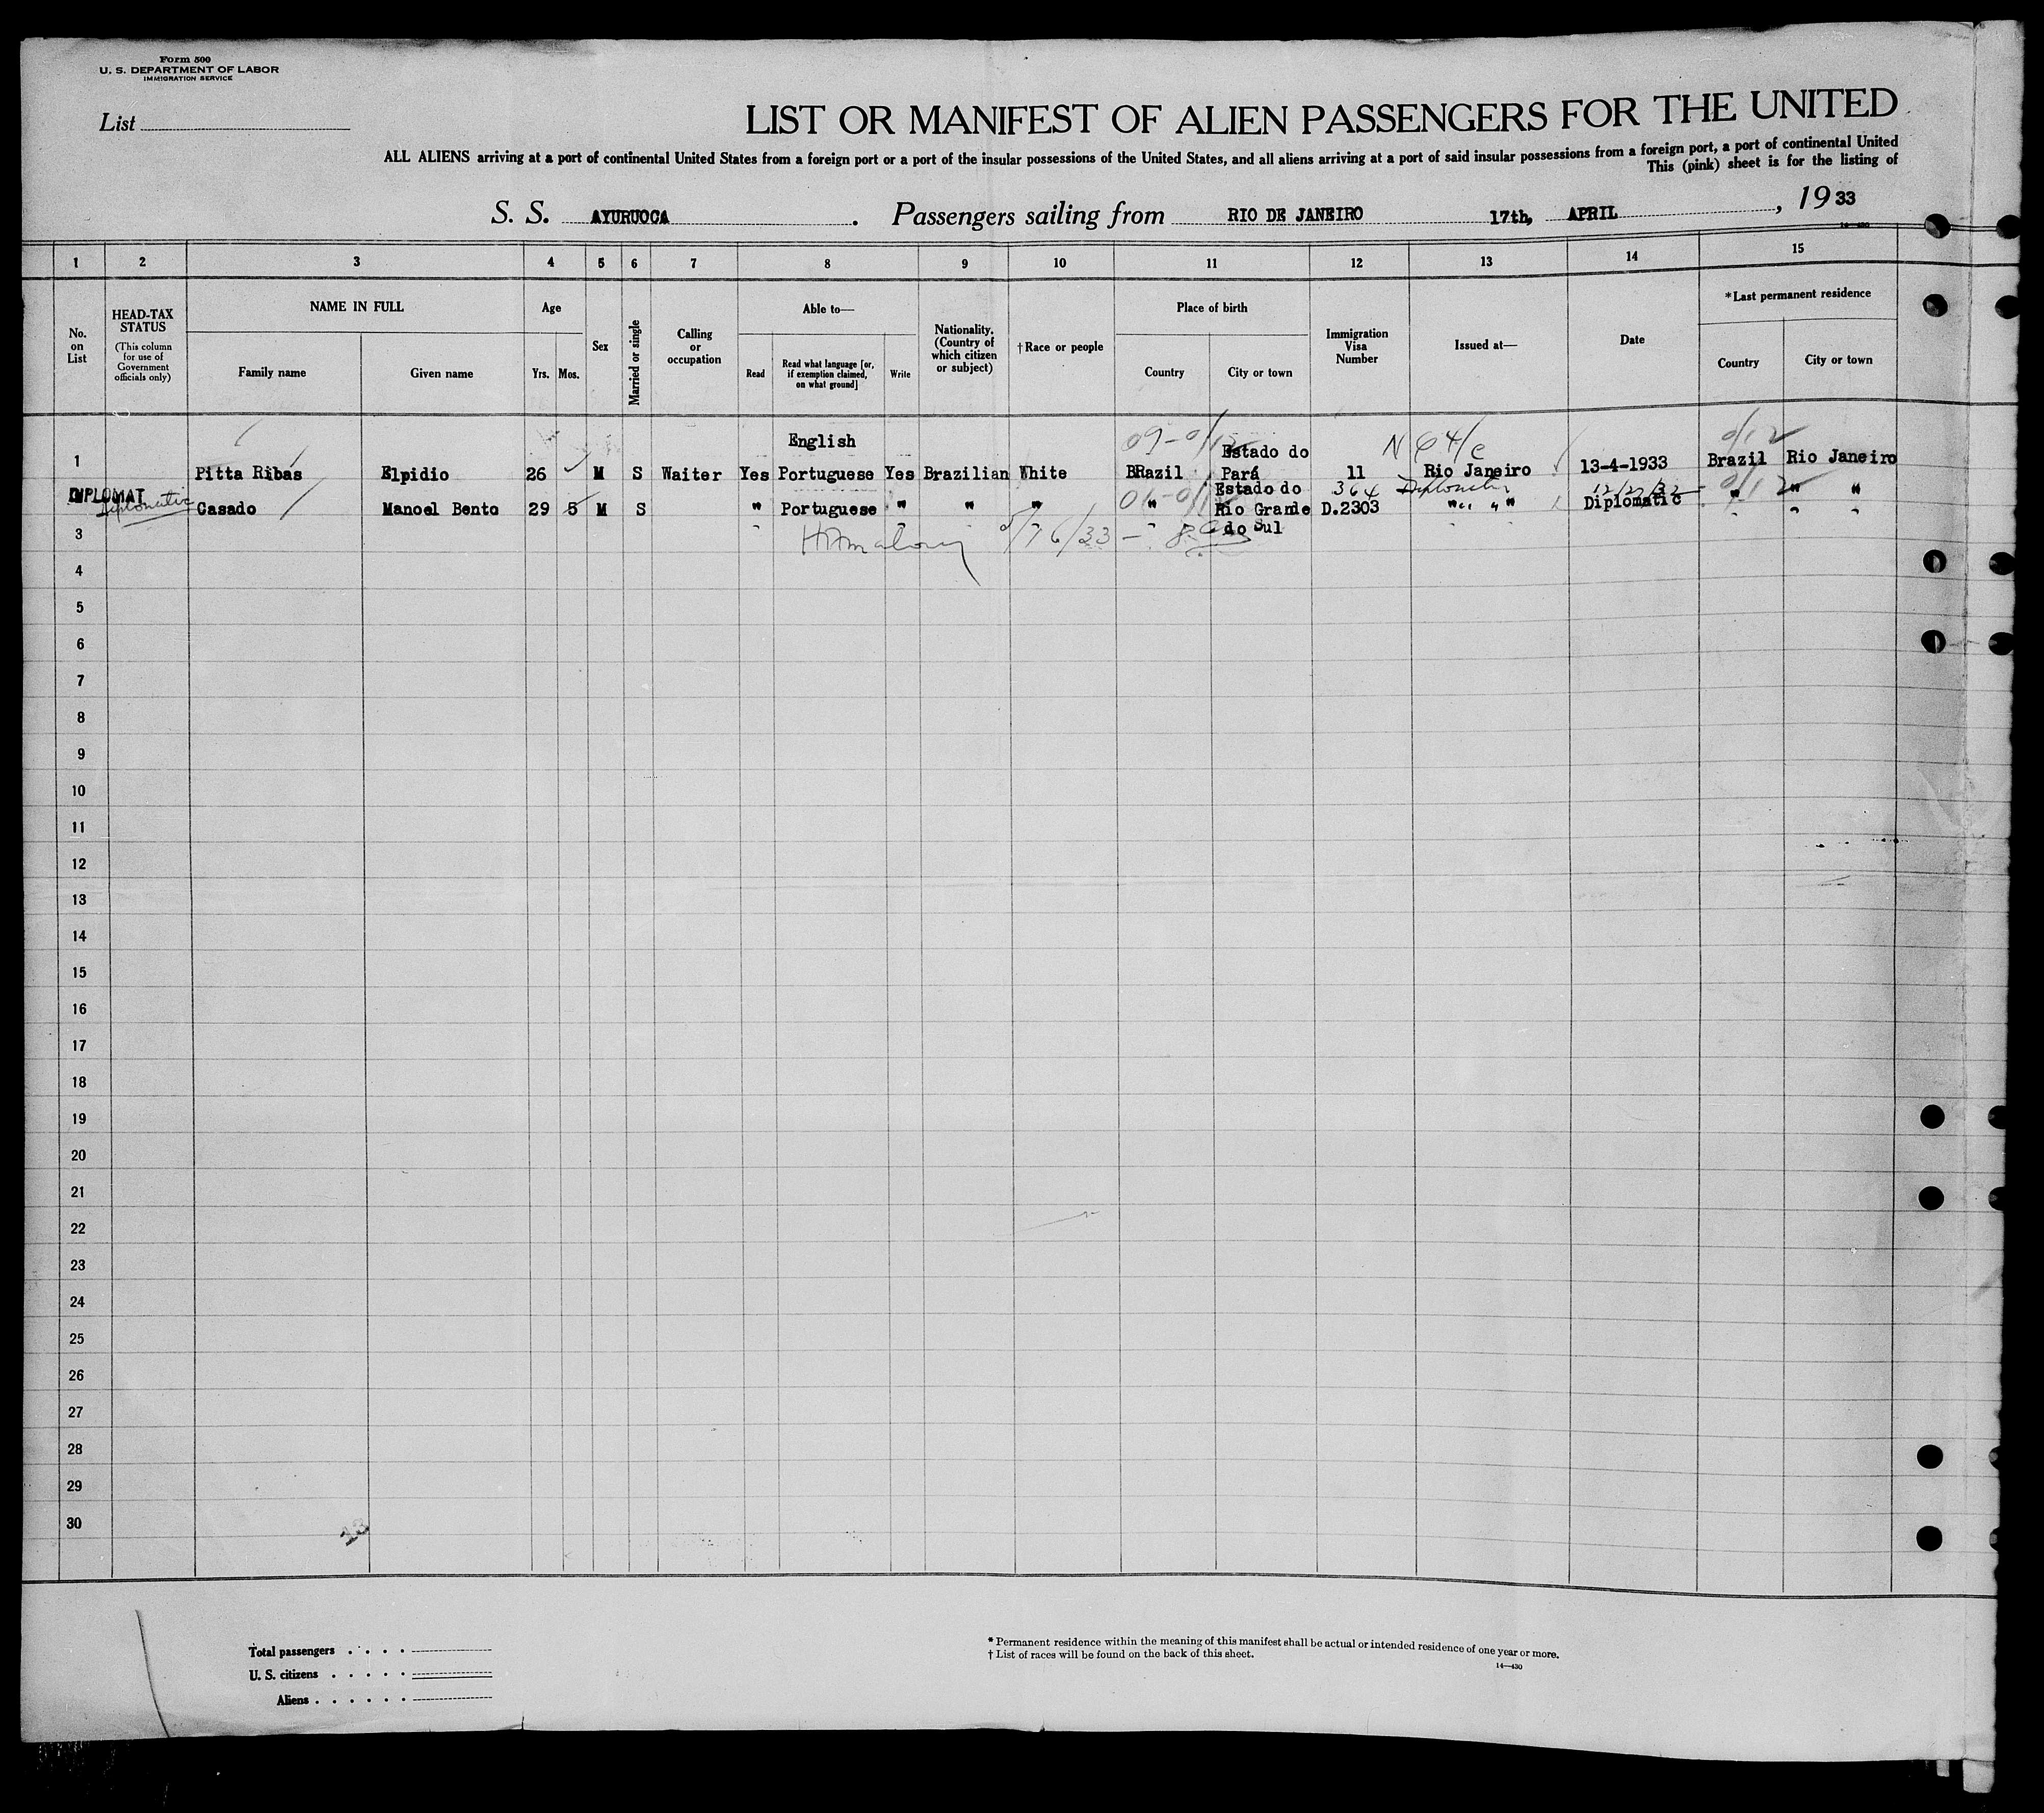 Form 500
U. S. DEPARTMENT OF LABOR
IMMIGRATION SERVICE
List
LIST OR MANIFEST OF ALIEN PASSENGERS FOR THE UNITED
ALL ALIENS arriving at a port of continental United States from a foreign port or a port of the insular possessions of the United States, and all aliens arriving at a port of said insular possessions from a foreign port, a port of continental United
This (pink) sheet is for the listing of
S. S. AYURUOCA. Passengers sailing from RIO DE JANEIRO 17th, APRIL, 1933
14—430
1 2 3 4 5 6 7 8 9 10 11 12 13 14 15
No. on List
HEAD-TAX STATUS
(This column for use of Government officials only)
NAME IN FULL
Family name
Given name
Age
Yrs. Mos.
Sex
Married or single
Calling or occupation
Able to—
Read
Read what language [or, if exemption claimed, on what ground]
Write
Nationality. (Country of which citizen or subject)
†Race or people
Place of birth
Country
City or town
Immigration Visa Number
Issued at—
Date
*Last permanent residence
Country
City or town
English
Estado do
N 64/c
0/12
1 Pitta Ribas Elpidio 26 M S Waiter Yes Portuguese Yes Brazilian White BRazil Pará 11 Rio Janeiro 13-4-1933 Brazil Rio Janeiro
DIPLOMAT Diplomatic
Estado do
364
Casado Manoel Bento 29 5 M S " Portuguese " " " " Rio Grande D.2303 " " Diplomatic " " "
do Sul
3
4
5
6
7
8
9
10
11
12
13
14
15
16
17
18
19
20
21
22
23
24
25
26
27
28
29
30
Total passengers
U. S. citizens
Aliens
* Permanent residence within the meaning of this manifest shall be actual or intended residence of one year or more.
† List of races will be found on the back of this sheet.
14—430